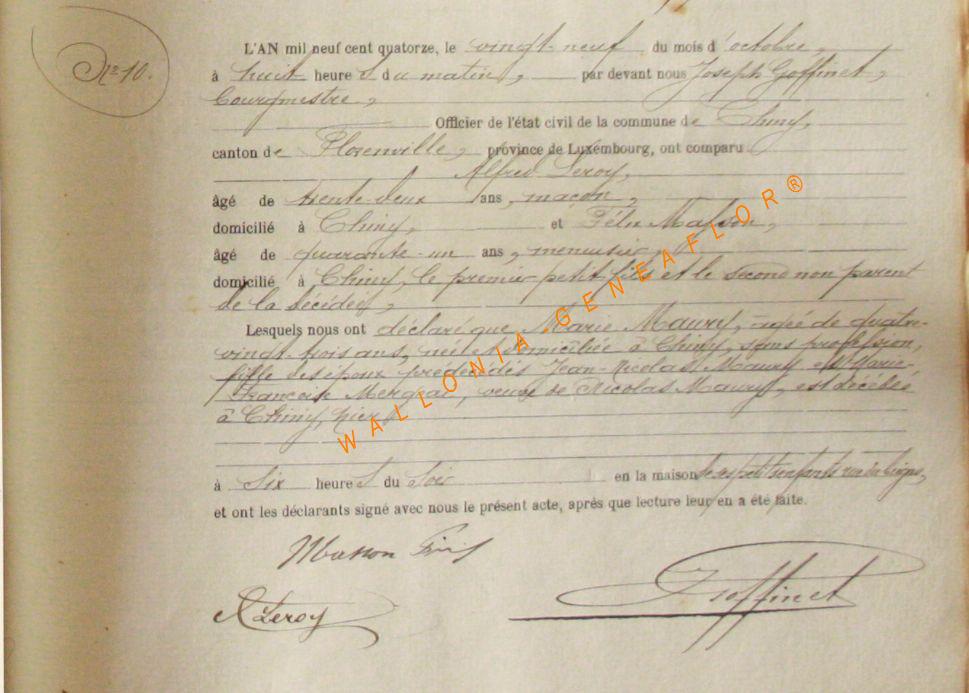 N° 10.
L'AN mil neuf cent quatorze, le vingt-neuf du mois d'octobre,
à huit heure s du matin, par devant nous Joseph Goffinet,
Bourgmestre,
Officier de l'état civil de la commune de Chiny,
canton de Florenville, province de Luxembourg, ont comparu
Alfred Leroy,
âgé de trente-deux ans, maçon,
domicilié à Chiny, et Masson,
âgé de quarante-un ans, menuisier,
domicilié à Chiny, le premier petit fils et le second non parent
de la décédée,
Lesquels nous ont déclaré que Marie Maury, agée de quatre-
vingt-trois ans, née et domiciliée à Chiny, sans profession,
fille des époux prédécédés Jean-Nicolas Maury et Marie
Françoise, veuve de Nicolas Maury, est décédée
à Chiny, hier
à six heure s du soir en la maison de ses petits enfants rue du
et ont les déclarants signé avec nous le présent acte, après que lecture leur en a été faite.
Masson
A Leroy
J Goffinet
WALLONIA GENEAFLOR®